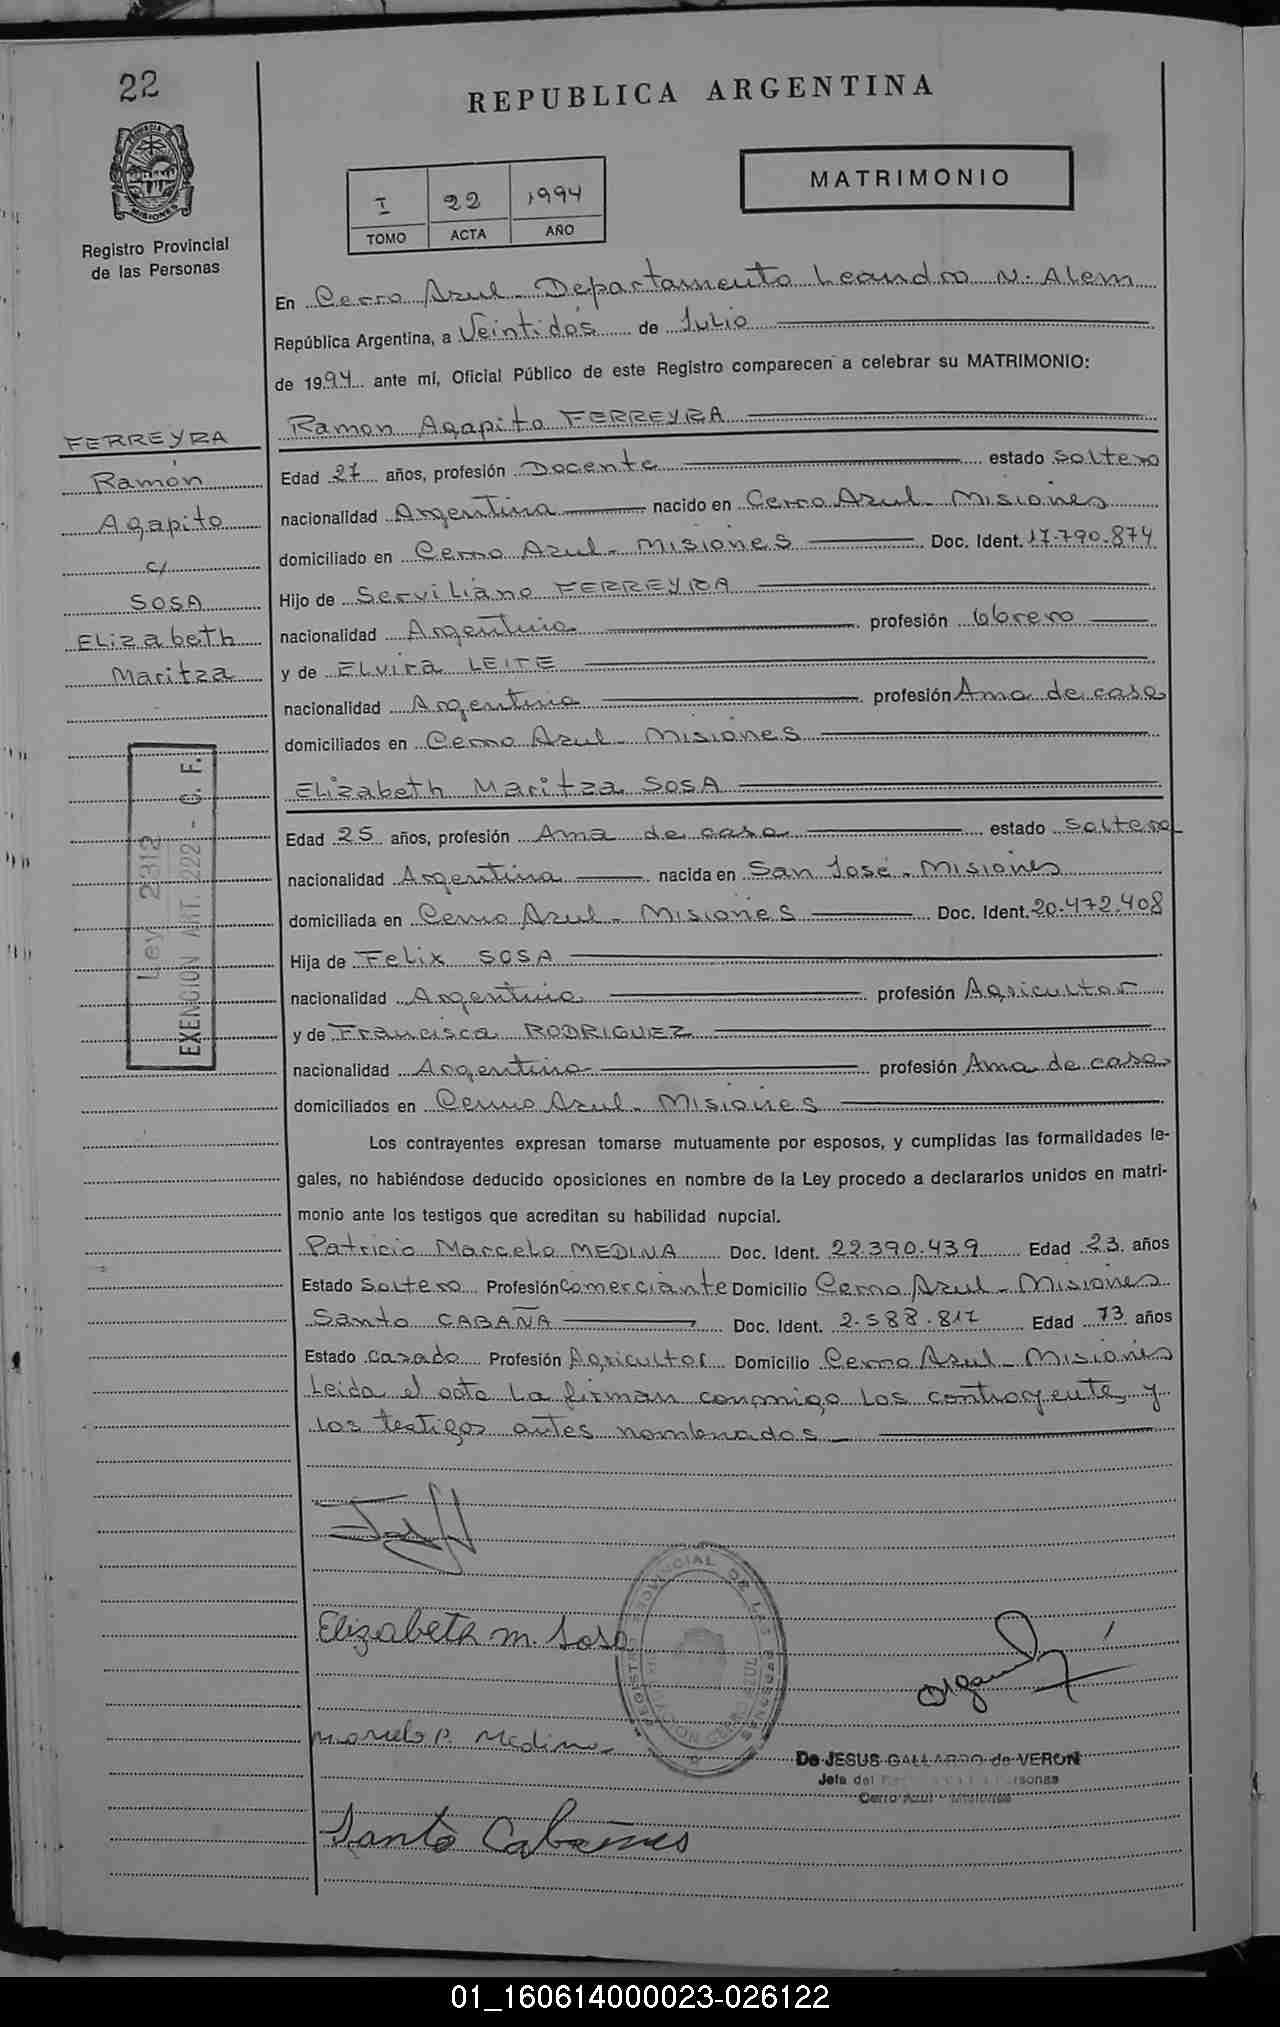 22
REPUBLICA ARGENTINA
PROVINCIA DE
MISIONES
Registro Provincial
de las Personas
I 22 1994
TOMO ACTA AÑO
MATRIMONIO
En Cerro Azul - Departamento Leandro N. Alem
República Argentina, a Veintidós de Julio
de 1994 ante mí, Oficial Público de este Registro comparecen a celebrar su MATRIMONIO:
Ramon Agapito FERREYRA
FERREYRA
Ramón
Agapito
c/
SOSA
Elizabeth
Maritza
Edad 27 años, profesión Docente estado Soltero
nacionalidad Argentina nacido en Cerro Azul - Misiones
domiciliado en Cerro Azul - Misiones Doc. Ident. 17.790.874
Hijo de Serviliano FERREYRA
nacionalidad Argentina profesión Obrero
y de Elvira LEITE
nacionalidad Argentina profesión Ama de casa
domiciliados en Cerro Azul - Misiones
Elizabeth Maritza SOSA
Edad 25 años, profesión Ama de casa estado Soltera
nacionalidad Argentina nacida en San José - Misiones
domiciliada en Cerro Azul - Misiones Doc. Ident. 20.472.408
Hija de Felix SOSA
nacionalidad Argentina profesión Agricultor
y de Francisca RODRIGUEZ
nacionalidad Argentina profesión Ama de casa
domiciliados en Cerro Azul - Misiones
Ley 2312
EXENCION ART. 222 - C. F.
Los contrayentes expresan tomarse mutuamente por esposos, y cumplidas las formalidades le-
gales, no habiéndose deducido oposiciones en nombre de la Ley procedo a declararlos unidos en matri-
monio ante los testigos que acreditan su habilidad nupcial.
Patricio Marcelo MEDINA Doc. Ident. 22.390.439 Edad 23 años
Estado Soltero Profesión Comerciante Domicilio Cerro Azul - Misiones
Santo CABAÑA Doc. Ident. 2.588.817 Edad 73 años
Estado Casado Profesión Agricultor Domicilio Cerro Azul - Misiones
Leida el acta la firman conmigo los contrayentes y
los testigos antes nombrados
Elizabeth M. Sosa
REGISTRO PROVINCIAL DE LAS PERSONAS
CERRO AZUL
Marcelo P. Medina
De JESUS GALLARDO de VERON
Jefa del Personas
Cerro Azul - Misiones
Santo Cabañas
01_160614000023-026122